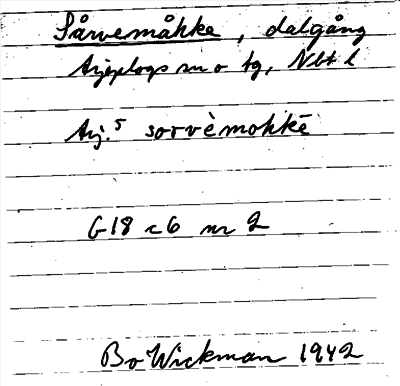 Sårvemåhke, dalgång
Arjeplogs sn o tg, Nbt l
Arj.⁵ sorvèmohkē
G18 c6 nr 2
Bo Wickman 1942